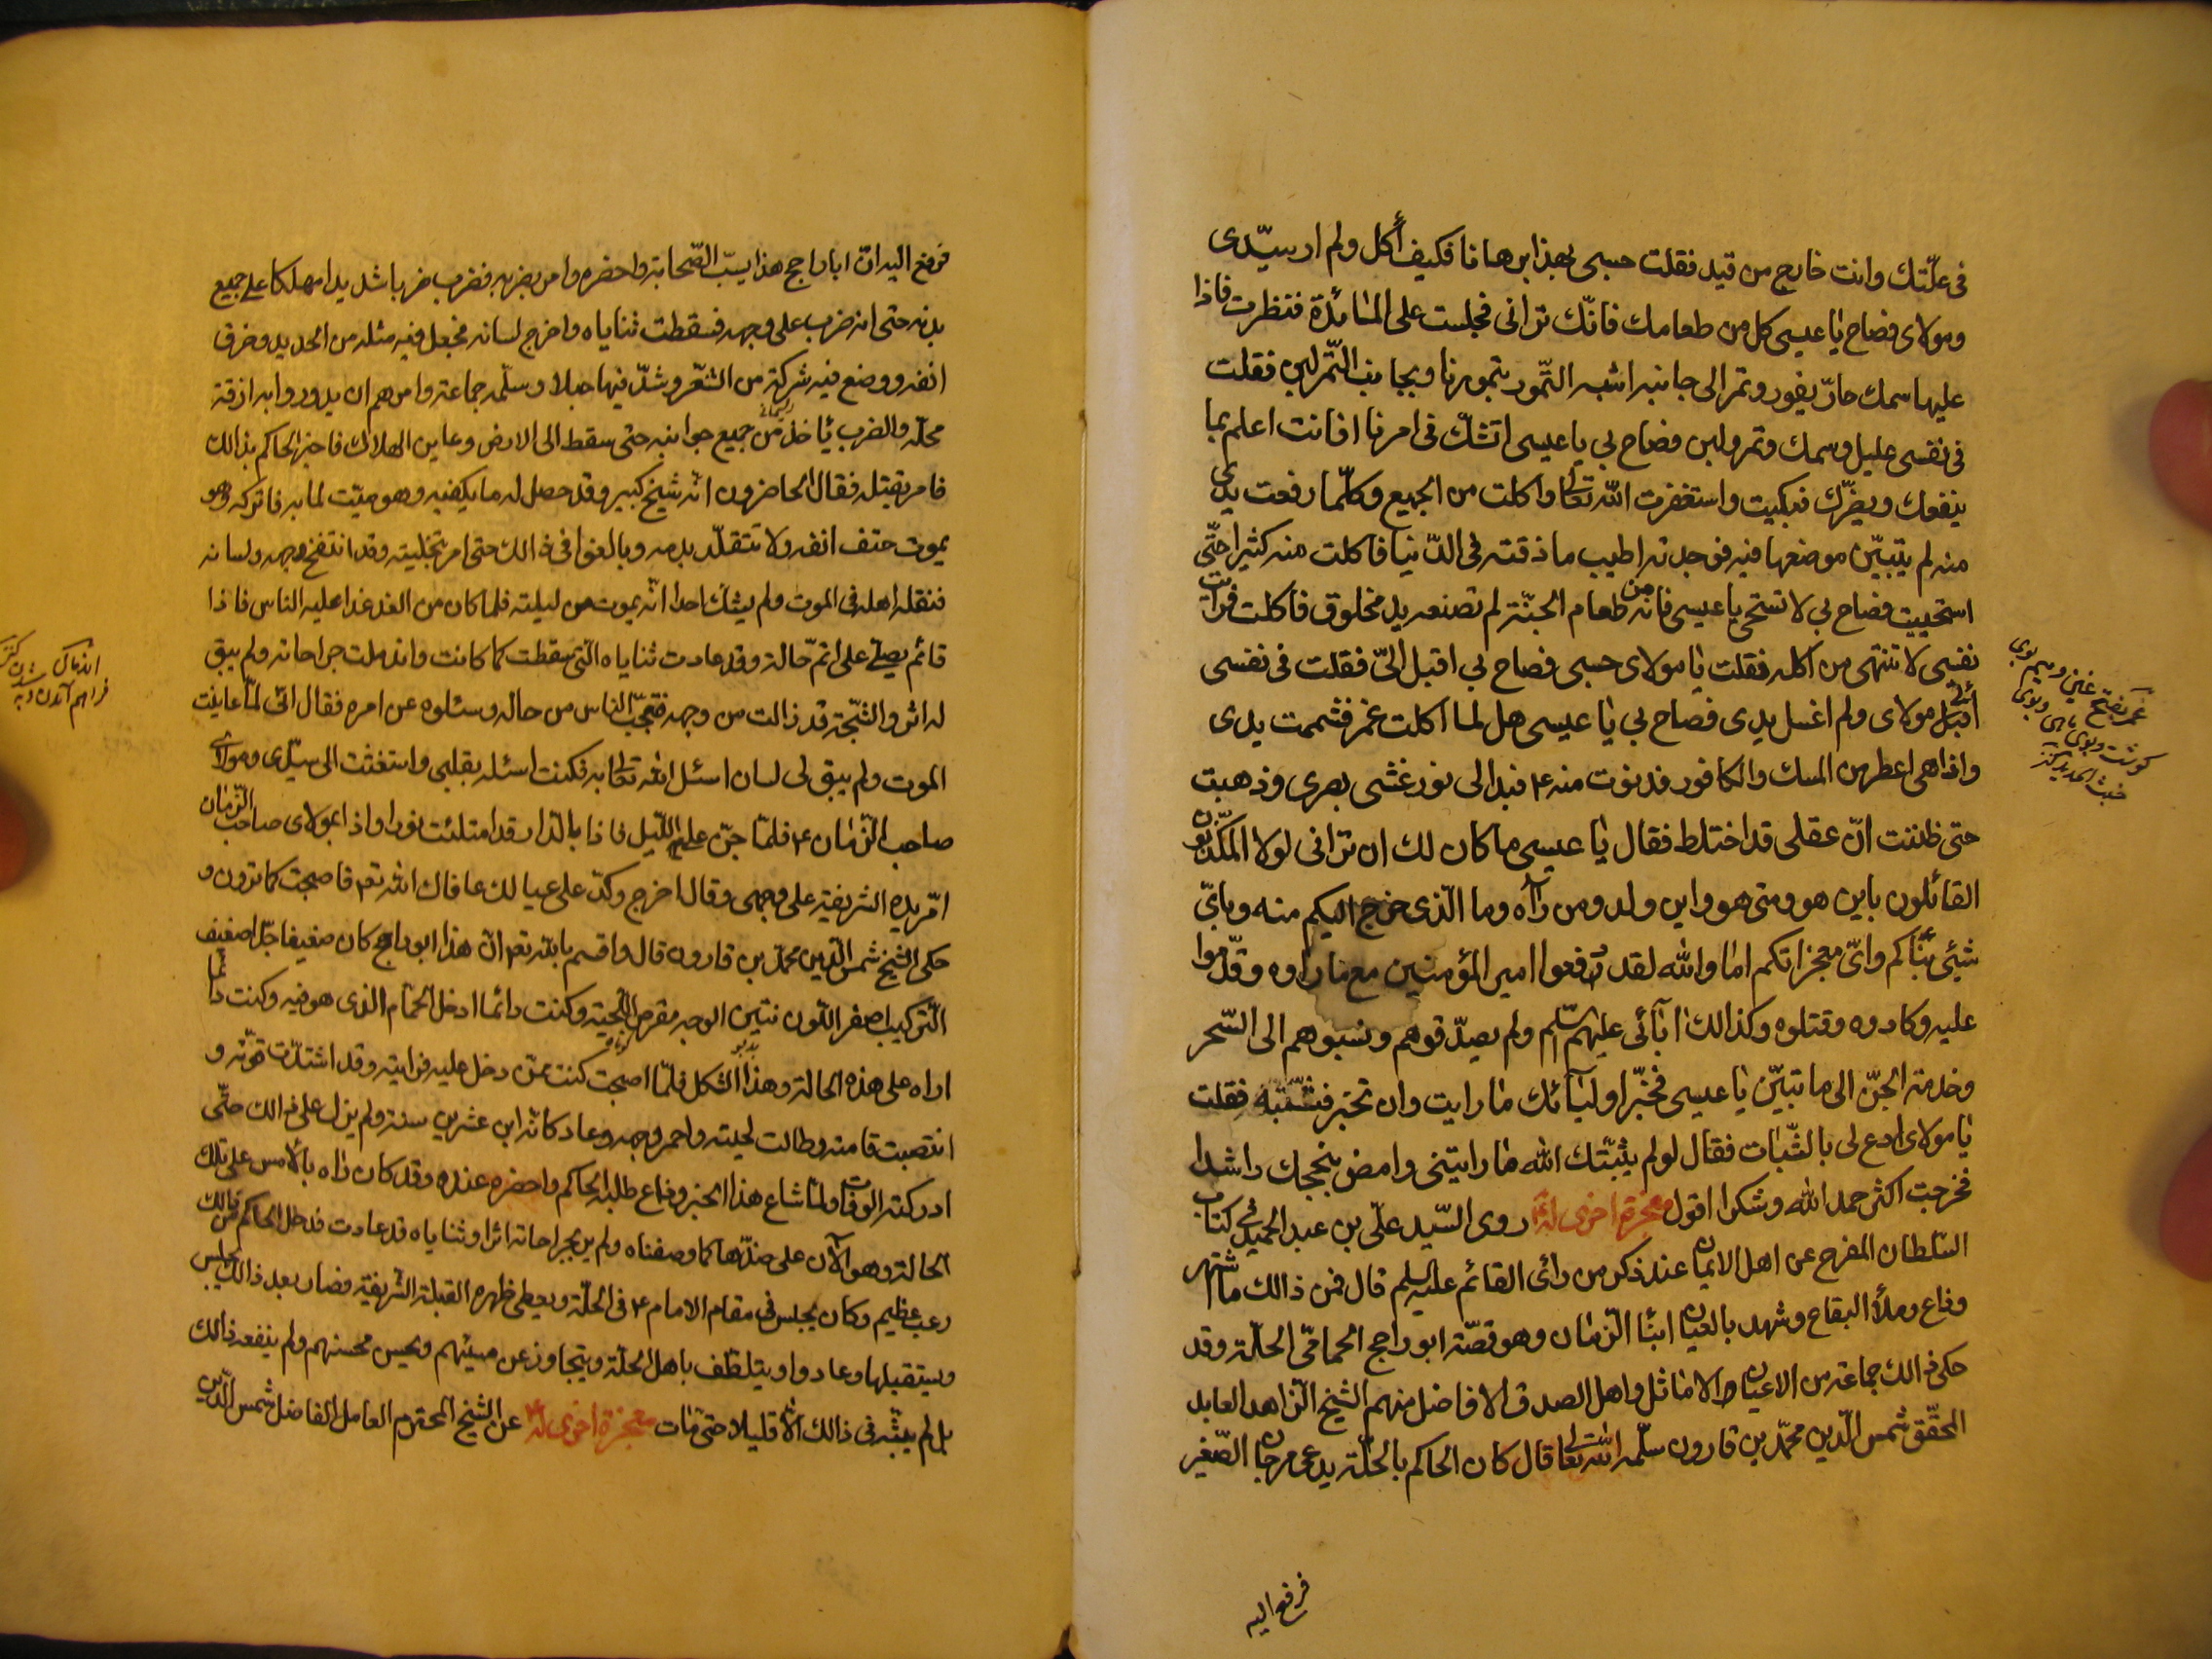 فى علّتك وانت خارج من فيد فقلت حسبى بهذا برهانا فكيف أكل ولم ار سيّدى
ومولاى فصاح يا عيسى كل من طعامك فانّك ترانى فجلست على المائدة فنظرت فاذا
عليها سمك حارّ يفور وتمر الى جانبه اشبه التّمور بتمورنا وبجانب التّمر لبن فقلت
فى نفسى عليل وسمك وتمر ولبن فصاح بى يا عيسى اتشكّ فى امرنا افانت اعلم بما
ينفعك ويضرّك فبكيت واستغفرت الله تعالى واكلت من الجميع وكلّما رفعت يدى
منه لم يتبيّن موضعها فيه فوجدته اطيب ما ذقته فى الدّنيا فاكلت منه كثيرا حتّى
استحييت فصاح بى لا تستحى يا عيسى فانه من طعام الجنّة لم تصنعه يد مخلوق فاكلت فرأيت
نفسى لا تنتهى من اكله فقلت يا مولاى حسبى فصاح بى اقبل الىّ فقلت فى نفسى
اقبل الى مولاى ولم اغسل يدى فصاح بى يا عيسى هل لما اكلت غمر فشممت يدى
واذا هى اعطر من المسك والكافور فدنوت منه ع فبدا لى نور غشى بصرى وذهبت
حتى ظننت انّ عقلى قد اختلط فقال يا عيسى ما كان لك ان ترانى لولا المكذّبون
القائلون باين هو ومتى هو واين ولد ومن رآه وما الّذى خرج اليكم منه وباىّ
شيئ نبّاكم واىّ معجز اتكم اما والله لقد دفعوا امير المؤمنين مع ما راوه وقدّموا
عليه وكادوه وقتلوه وكذالك ابآئى عليهم السّلم ولم يصدّقوهم ونسبوهم الى السّحر
وخدمة الجنّ الى ما تبيّن يا عيسى فخبّر اوليآئنك ما رايت وان تخبر فتسّنبه فقلت
يا مولاى ادع لى بالثّبات فقال لو لم يثبّتك الله ما رايتنى وامض بنجحك راشدا
فخرجت اكثر حمد الله وشكرا اقول معجزة اخرى له ع روى السّيد علّى بن عبد الحميد فى كتاب
السّلطان المفرح عن اهل الايمان عند ذكر من رائى القائم عليه السلم قال فمن ذالك ما اشتهر
وذاع وملأ البقاع وشهد بالعيان ابنا الزّمان وهو قصّة ابو راجح الحمامّى الحلّة وقد
حكى ذالك جماعة من الاعيان والاماثل واهل الصدق الافاضل منهم الشيخ الزّاهد العابد
المحقّق شمس الدّين محمّد بن قارون سلّمه الله تعالى قال كان الحاكم بالحلّة يدعى مرجان الصّغير
فرفع اليه
غمر بفتح غين وميم بوى
كوشت وبوى ماهى وبوى
فرفع اليه انّ ابا راجح هذا يسبّ الصّحابة واحضره وامر بضربه فضرب ضربا شديدا مهلكا على جميع
بدنه حتى انه ضرب على وجهه فسقطت ثناياه واخرج لسانه فجعل فيه مسلة من الحديد وخرق
انفه ووضع فيه شركة من الشّعر وشدّ فيها حبلا وسلّمه جماعة وامرهم ان يدوروا به ازقة
محلّة والضرب ياخذ من جميع جوانبه حتى سقط الى الارض وعاين الهلاك فاخبر الحاكم بذالك
فامر بقتله فقال الحاضرون انّه شيخ كبير وقد حصل له ما يكفيه وهو ميّت لما به فاتركه وهو
يموت حتف انفه ولا تتقلّد بدمه وبالغوا فى ذالك حتى امر بتخليته وقد انتفخ وجهه ولسانه
فنقله اهله فى الموت ولم يشك احد انّه يموت من ليلته فلما كان من الغد غدا عليه الناس فاذا
قائم يصلّى على اتمّ حالة وقد عادت ثناياه الّتى سقطت كما كانت واندملت جراحاته ولم يبق
له اثر والشّجّة قد زالت من وجهه فتعجّب الناس من حاله وسئلوه عن امره فقال انّى لمّا عاينت
الموت ولم يبق لى لسان اسئل الله تعالى به فكنت اسئله بقلبى واستغثت الى سيّدى ومولاى
صاحب الزّمان ع فلمّا جنّ علىّ اللّيل فاذا بالدّار قد امتلئت نورا واذا بمولاى صاحب الزّمان
امرّ يده الشريفة على وجهى وقال اخرج وكدّ على عيالك عافاك الله تع فاصبحت كما ترون و
حكى الشيخ شمس الدّين محمّد بن قارون قال واقسم بالله تع انّ هذا ابو راجح كان ضعيفا جدّا ضعيف
التّركيب اصفر اللّون شين الوجه مقرض اللّحية وكنت دائما ادخل الحمّام الذى هو فيه وكنت دائما
اراه على هذه الحالة وهذا الشكل فلمّا اصبحت كنت ممّن دخل عليه فرايته وقد اشتدّت قوّته و
انتصبت قامته وطالت لحيته واحمر وجهه وعاد كانّه ابن عشرين سنة ولم يزل على ذالك حتّى
ادركته الوفات ولمّا شاع هذا الخبر وذاع طلبه الحاكم واحضره عنده وقد كان راه بالامس على تلك
الحالة وهو الآن على ضدّها كما وصفناه ولم ير بجراحاته اثرا وثناياه قد عادت فدخل الحاكم من ذالك
رعب عظيم وكان يجلس فى مقام الامام ع فى الحلّة ويعطى ظهره القبلة الشريفة فصار بعد ذالك يجلس
ويستقبلها وعاد واو يتلطّف باهل الحلّة ويتجاوز عن مسيئهم ويحسن محسنهم ولم ينفعه ذالك
بل لم يلبث فى ذالك الّا قليلا حتى مات معجزة اخرى له ع عن الشيخ المحترم العامل الفاضل شمس الدّين
اندمال
فراهم آمدن